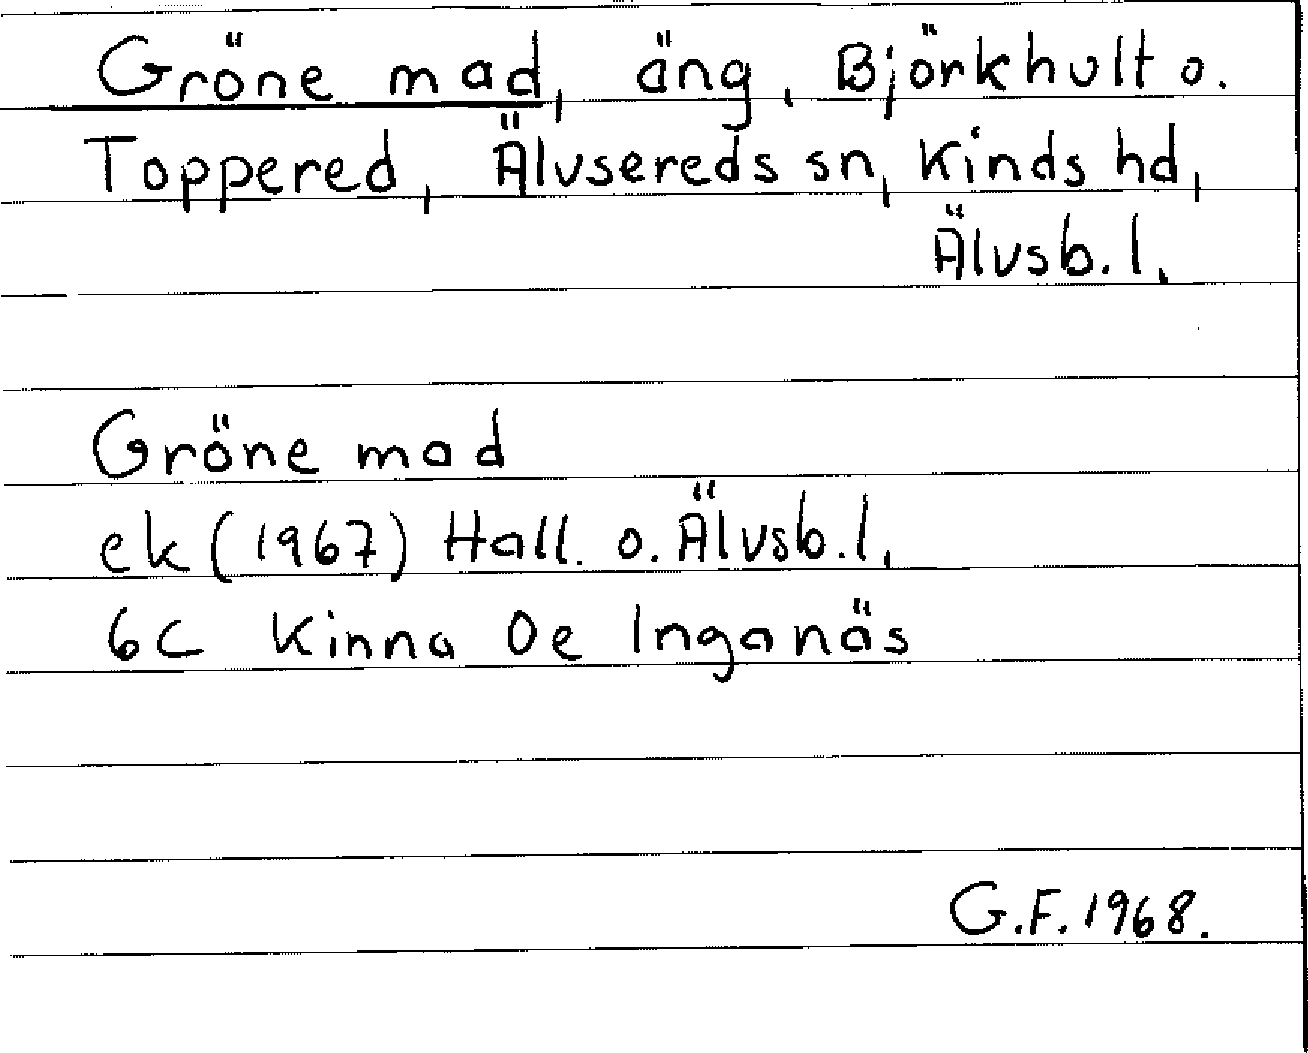 Gröne mad, äng, Björkhult o.
Toppered, Älvsereds sn, Kinds hd,
Älvsb. l.
Gröne mad
ek (1967) Hall. o. Älvsb. l.
6C Kinna 0e Inganäs
G.F. 1968.